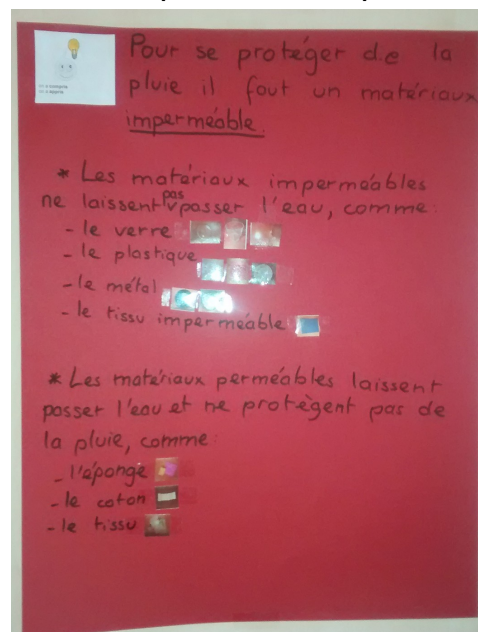 Pour se protéger de la
pluie il faut un matériaux
imperméable.
* Les matériaux imperméables
ne laissent pas passer l'eau, comme:
- le verre
- le plastique
- le métal
- le tissu imperméable
* Les matériaux perméables laissent
passer l'eau et ne protègent pas de
la pluie, comme:
- l'éponge
- le coton
- le tissu